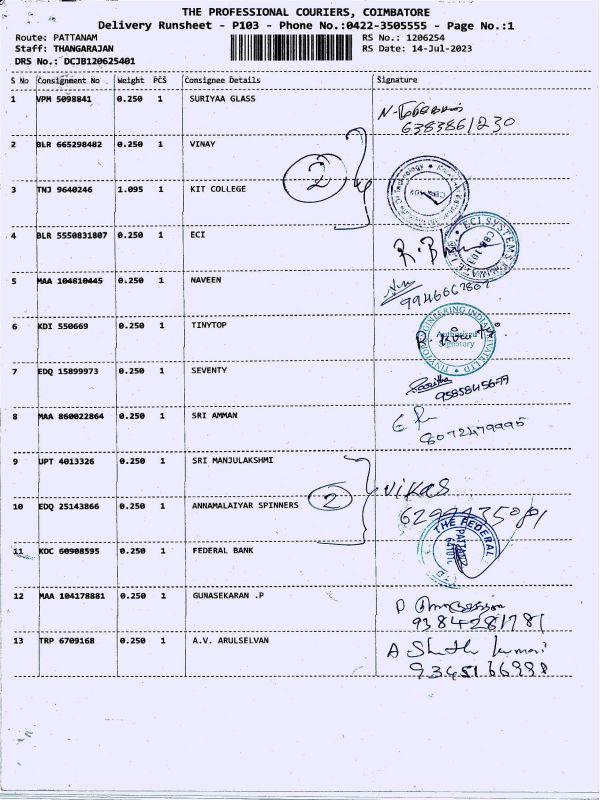 THE PROFESSIONAL COURIERS, COIMBATORE
Delivery Runsheet - P103 - Phone No.:0422-3505555 - Page No.:1
Route: PATTANAM RS No.: 1206254
Staff: THANGARAJAN RS Date: 14-Jul-2023
DRS No.: DCJB120625401
S No Consignment No Weight PCS Consignee Details Signature
1 VPM 5098841 0.250 1 SURIYAA GLASS
6383861230
2 BLR 665298482 0.250 1 VINAY
2
3 TNJ 9640246 1.095 1 KIT COLLEGE
4 BLR 5550831807 0.250 1 ECI
ECI SYSTEMS
5 MAA 104810445 0.250 1 NAVEEN
9946667867
6 KDI 550669 0.250 1 TINYTOP
Authorised
Signatory
7 EDQ 15899973 0.250 1 SEVENTY
8 MAA 860022864 0.250 1 SRI AMMAN
8072479995
9 UPT 4013326 0.250 1 SRI MANJULAKSHMI
Vikas
10 EDQ 25143866 0.250 1 ANNAMALAIYAR SPINNERS 2
11 KOC 60908595 0.250 1 FEDERAL BANK
THE FEDERAL
12 MAA 104178881 0.250 1 GUNASEKARAN .P
9384281781
13 TRP 6709168 0.250 1 A.V. ARULSELVAN